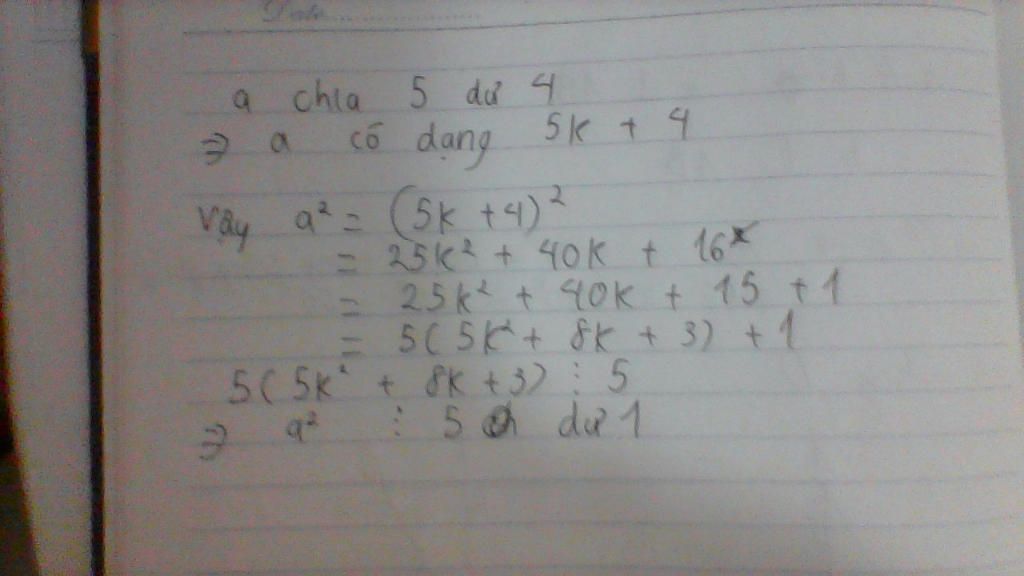 Date
a chia 5 dư 4
⇒ a có dạng 5k + 4
Vậy a² = (5k + 4)²
= 25k² + 40k + 16
= 25k² + 40k + 15 + 1
= 5(5k² + 8k + 3) + 1
5(5k² + 8k + 3) ⋮ 5
⇒ a² ⋮ 5 dư 1